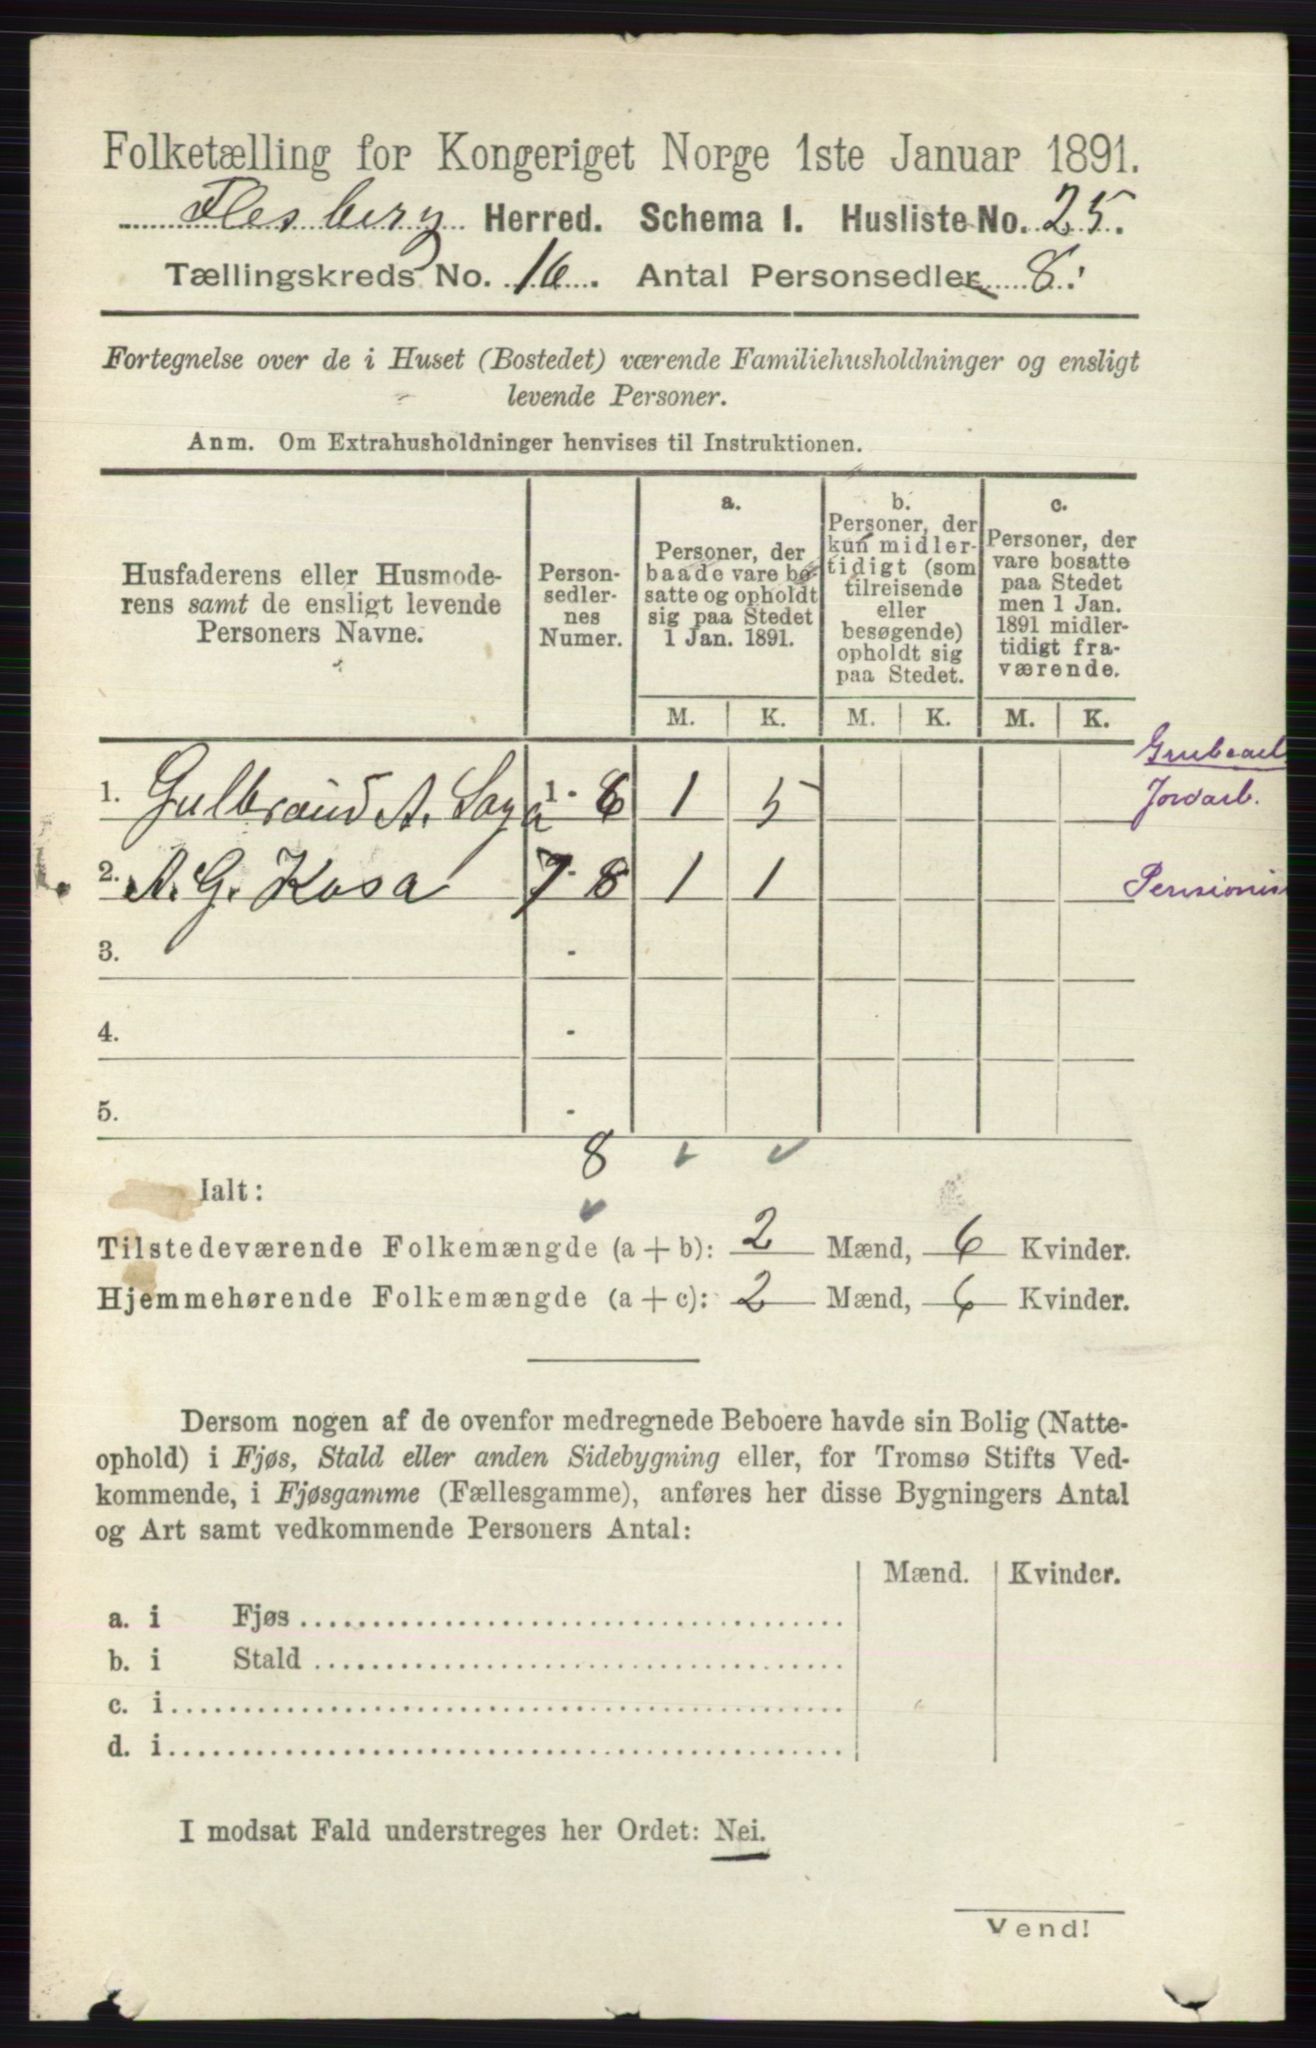 Folketælling for Kongeriget Norge 1ste Januar 1891.
Flesberg Herred. Schema I. Husliste No. 25.
Tællingskreds No. 16. Antal Personsedler 8.
Fortegnelse over de i Huset (Bostedet) værende Familiehusholdninger og ensligt
levende Personer.
Anm. Om Extrahusholdninger henvises til Instruktionen.
Husfaderens eller Husmode-
rens samt de ensligt levende
Personers Navne.
Person-
sedler-
nes
Numer.
a.
Personer, der
baade vare bo-
satte og opholdt
sig paa Stedet
1 Jan. 1891.
b.
Personer, der
kun midler-
tidigt (som
tilreisende
eller
besøgende)
opholdt sig
paa Stedet.
c.
Personer, der
vare bosatte
paa Stedet
men 1 Jan.
1891 midler-
tidigt fra-
værende.
M. K. M. K. M. K.
Grubearb
1. Gulbrand A. 1 - 6 1 5 Jordarb.
2. A. G. Kasa 7 - 8 1 1 Pensionis
3. -
4. -
5. -
8
Ialt:
Tilstedeværende Folkemængde (a + b): 2 Mænd, 6 Kvinder.
Hjemmehørende Folkemængde (a + c): 2 Mænd, 6 Kvinder.
Dersom nogen af de ovenfor medregnede Beboere havde sin Bolig (Natte-
ophold) i Fjøs, Stald eller anden Sidebygning eller, for Tromsø Stifts Ved-
kommende, i Fjøsgamme (Fællesgamme), anføres her disse Bygningers Antal
og Art samt vedkommende Personers Antal:
Mænd. Kvinder.
a. i Fjøs
b. i Stald
c. i
d. i
I modsat Fald understreges her Ordet: Nei.
Vend!